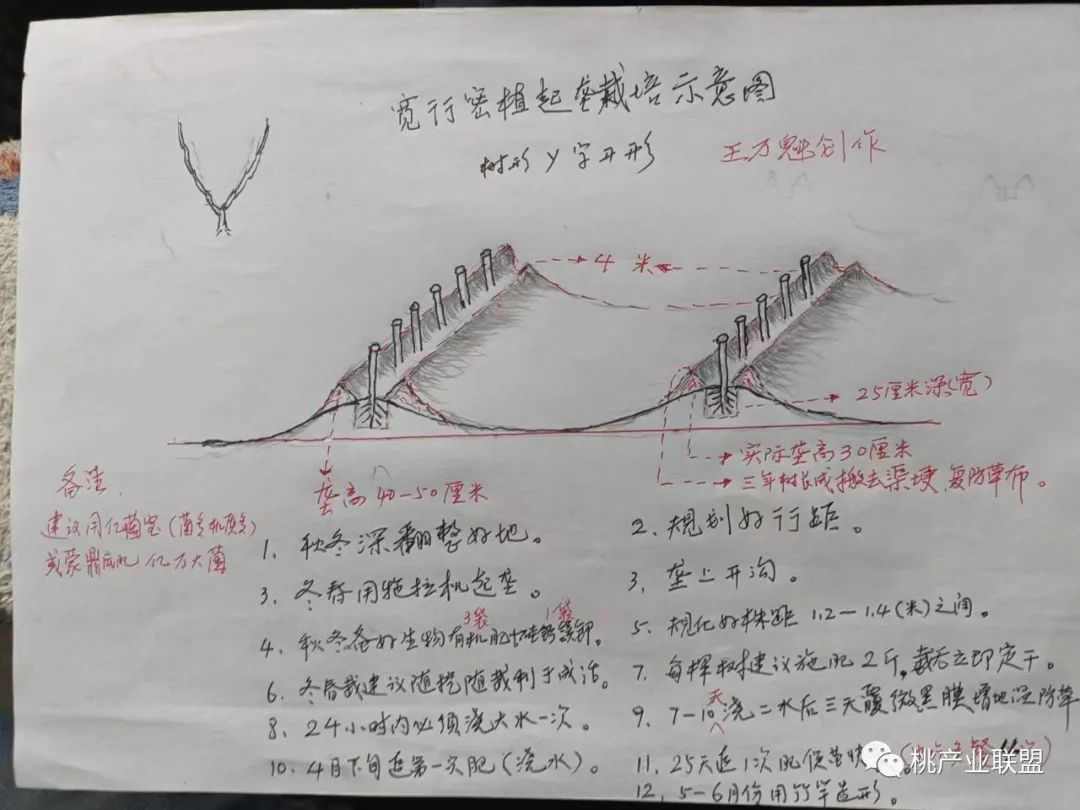 宽行密植起垄栽培示意图
树形 Y 字开形
王万魁创作
4 米
25厘米深(宽)
实际垄高30厘米
三年树长成搬去渠埂,复防草布。
垄高40-50厘米
备注
建议用亿菌宝(菌多机质多)
或蒙鼎底肥 亿万大菌
1、秋冬深翻整好地。
2、规划好行距。
3、冬春用拖拉机起垄。
3、垄上开沟。
3袋 1袋
4、秋冬备好生物有机肥+硅钙镁钾。
5、规化好株距 1.2-1.4(米)之间。
6、冬春栽建议随挖随栽利于成活。
7、每棵树建议施肥2斤,栽后立即定干。
8、24小时内必须浇大水一次。
9、7-10天浇二水后三天覆微黑膜增地温防草
10、4月下旬追第一次肥(浇水)。
11、25天追1次肥促苗
12、5-6月份用竹竿造形。
桃产业联盟